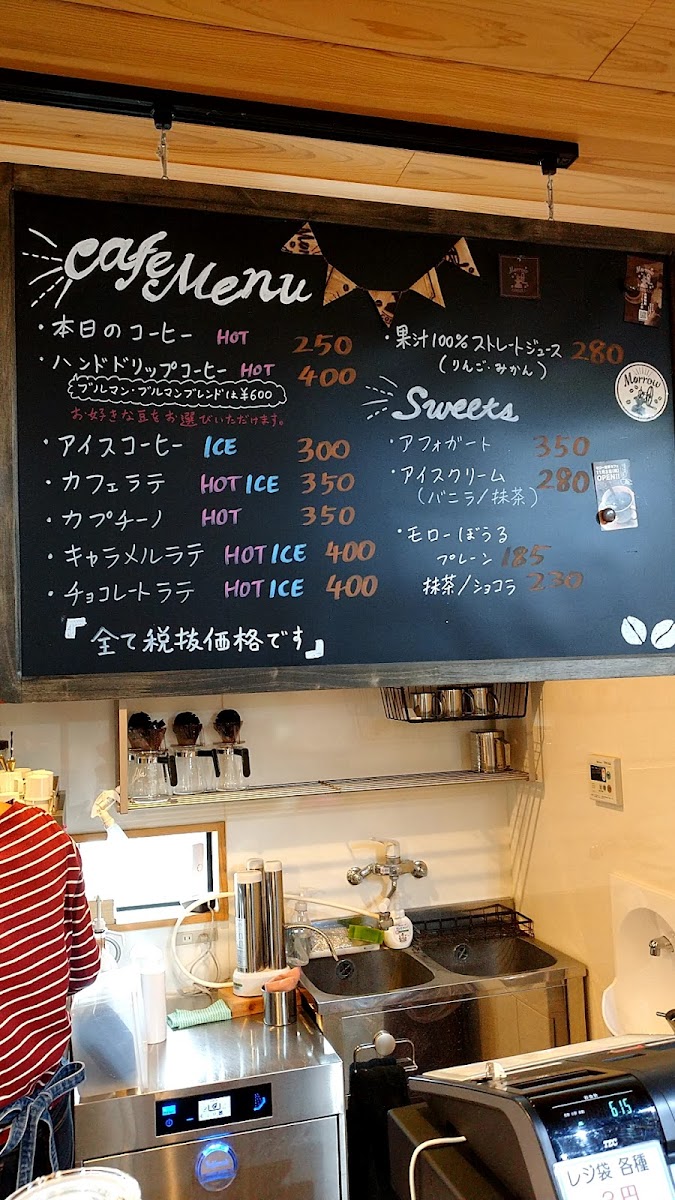 Cafe Menu
・本日のコーヒー HOT 250
・ハンドドリップコーヒー HOT 400
ブルマン・ブルマンブレンドは¥600
お好きな豆をお選びいただけます。
・アイスコーヒー ICE 300
・カフェラテ HOT ICE 350
・カプチーノ HOT 350
・キャラメルラテ HOT ICE 400
・チョコレートラテ HOT ICE 400
『全て税抜価格です』
・果汁100%ストレートジュース 280
(りんご・みかん)
Sweets
・アフォガート 350
・アイスクリーム 280
(バニラ/抹茶)
・モローぼうる
プレーン 185
抹茶/ショコラ 230
Morrow
OPEN!!
6.15
TEC
レジ袋 各種